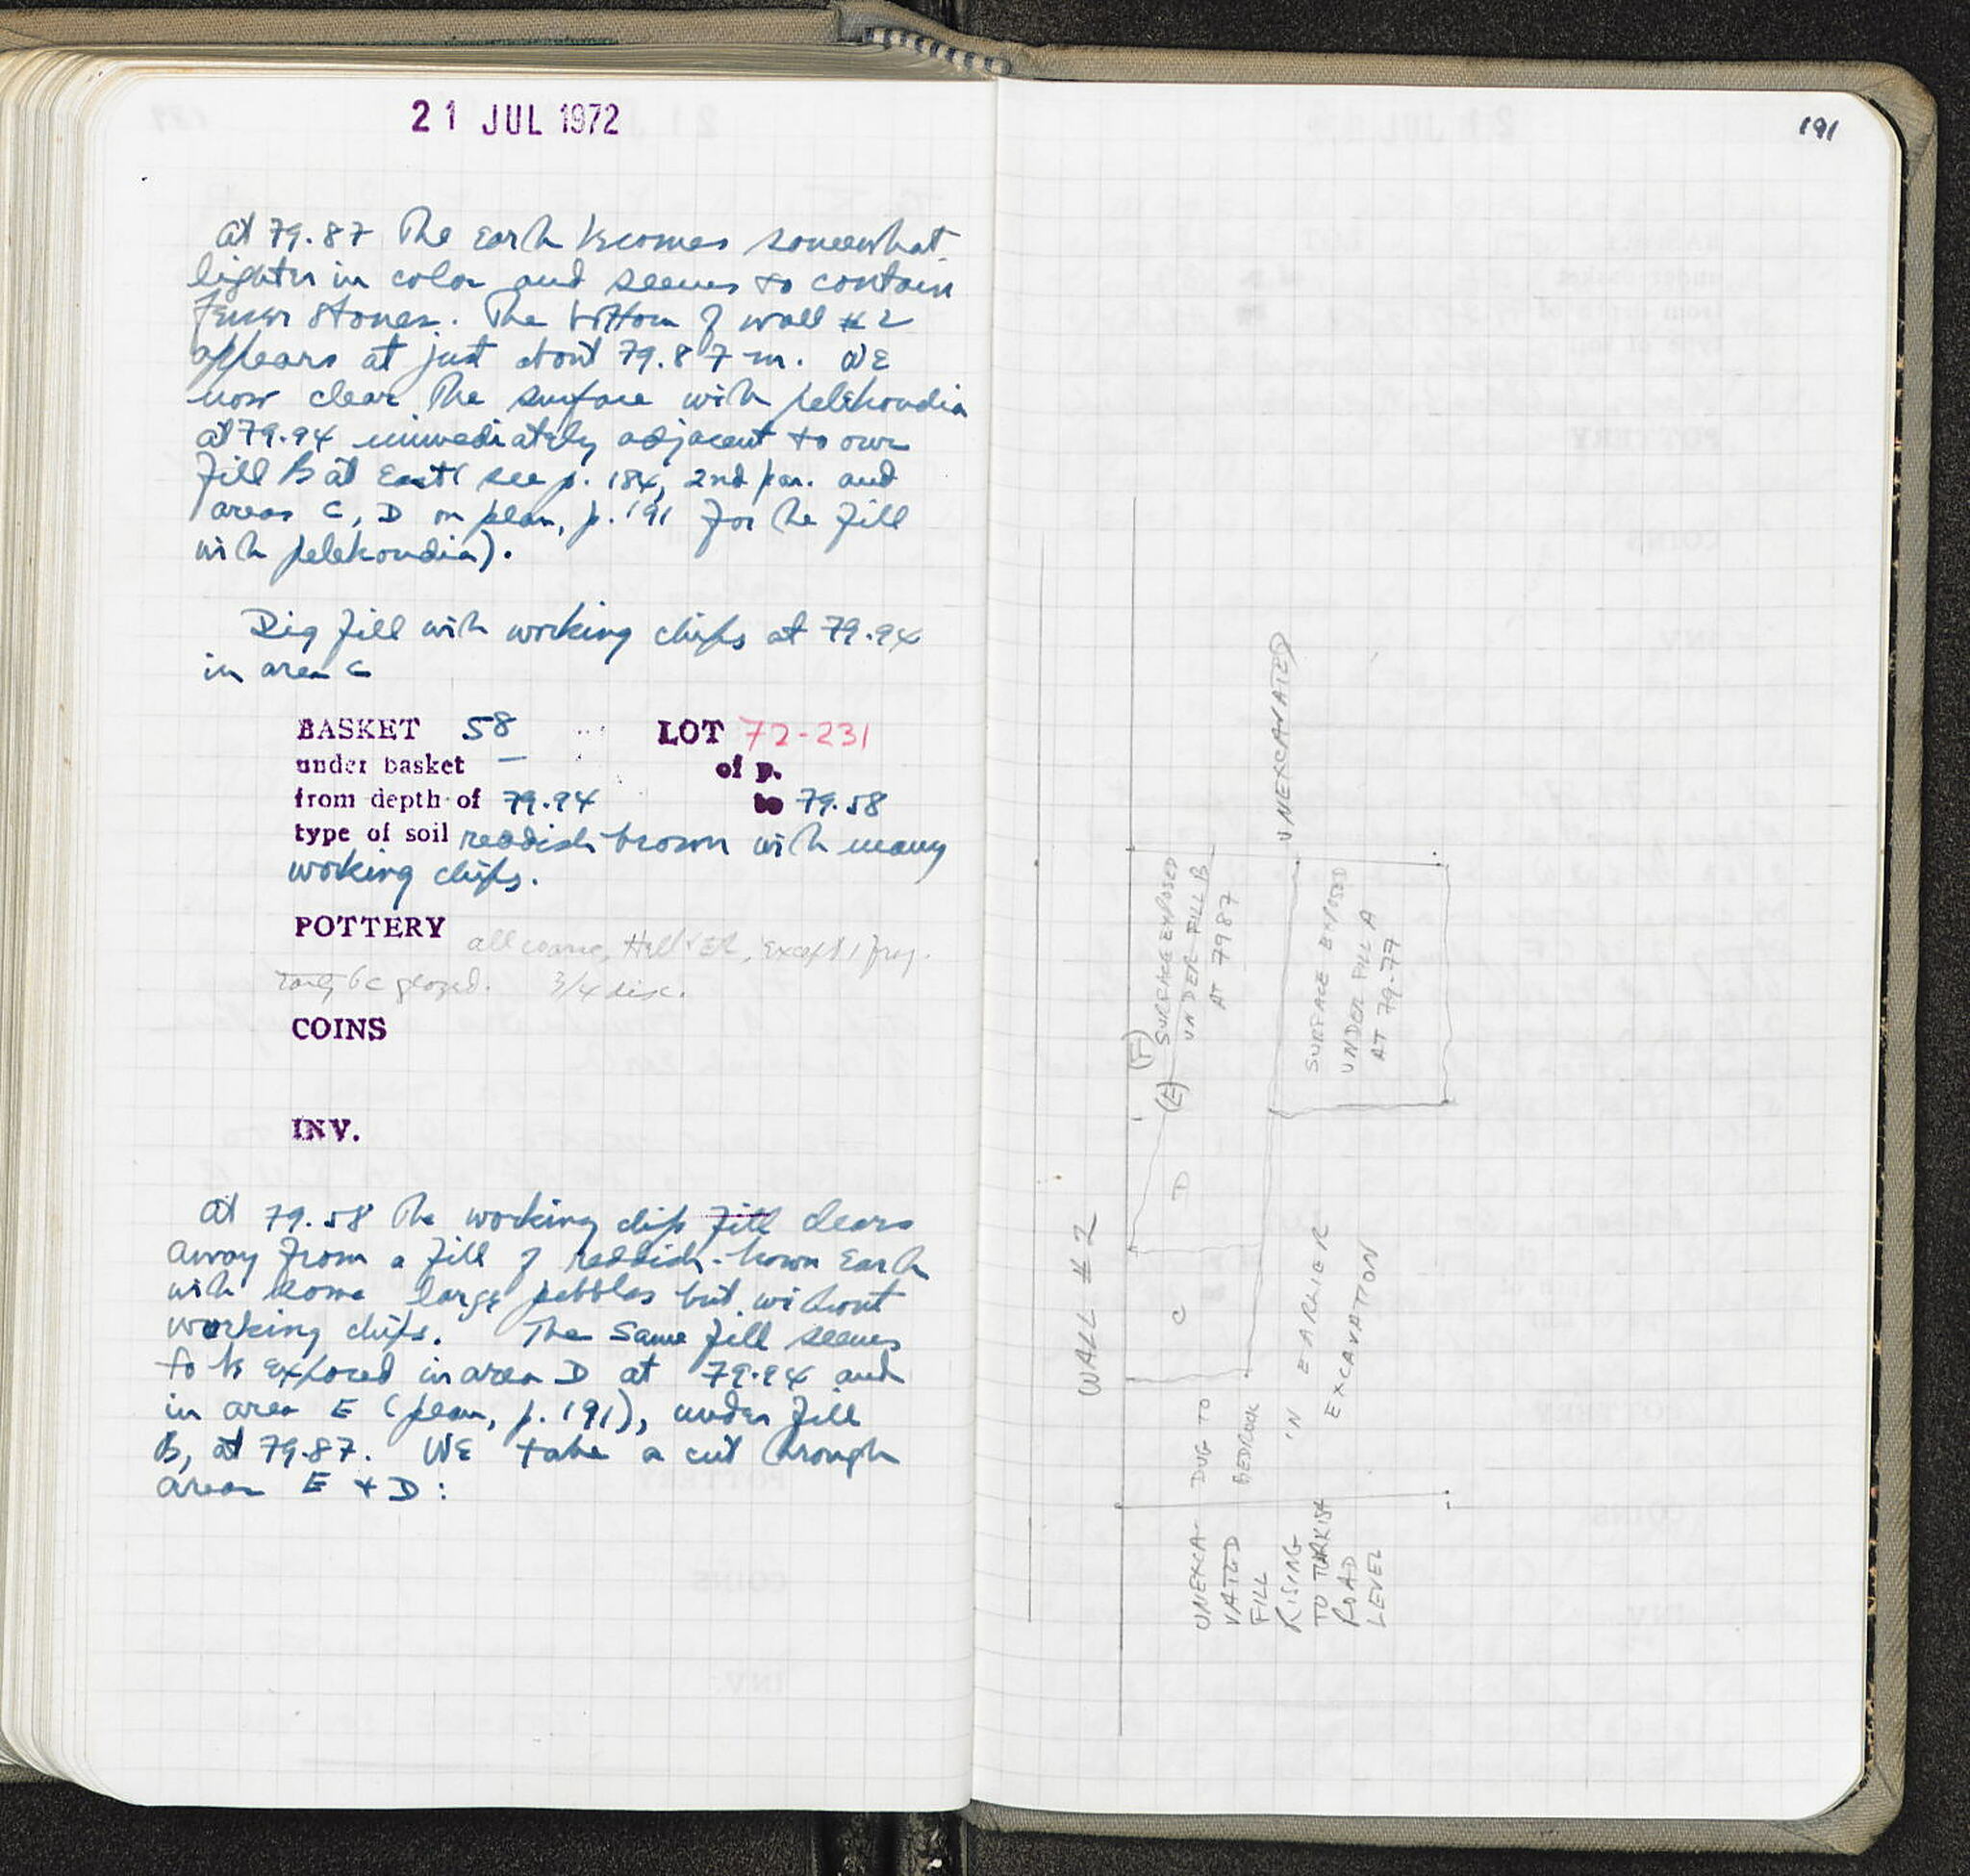 21 JUL 1972
at 79.87 the earth becomes somewhat
lighter in color and seems to contain
fewer stones. The bottom of wall #2
appears at just about 79.87 m. WE
now clear the surface with pelekoudia
at 79.94 immediately adjacent to our
fill B at East (see p. 184, 2nd par. and
areas C, D on plan, p. 191 for the fill
with pelekoudia).
Dig fill with working chips at 79.94
in area C
BASKET 58 LOT 72-231
under basket — of p.
from depth of 79.94 to 79.58
type of soil reddish brown with many
working chips.
POTTERY all coarse, Hell + ER, except 1 frag.
early bc glazed. 3/4 disc.
COINS
INV.
at 79.58 the working chip fill clears
away from a fill of reddish-brown Earth
with some large pebbles but without
working chips. The same fill seems
to be exposed in area D at 79.94 and
in area E (plan, p. 191), under fill
B, at 79.87. WE take a cut through
areas E + D:
191
WALL #2
UNEXCAVATED
(F)
(E) SURFACE EXPOSED
UNDER FILL B
AT 79.87
SURFACE EXPOSED
UNDER FILL A
AT 79.77
D
C
DUG TO
BEDROCK
IN EARLIER
EXCAVATION
UNEXCA-
VATED
FILL
RISING
TO TURKISH
ROAD
LEVEL